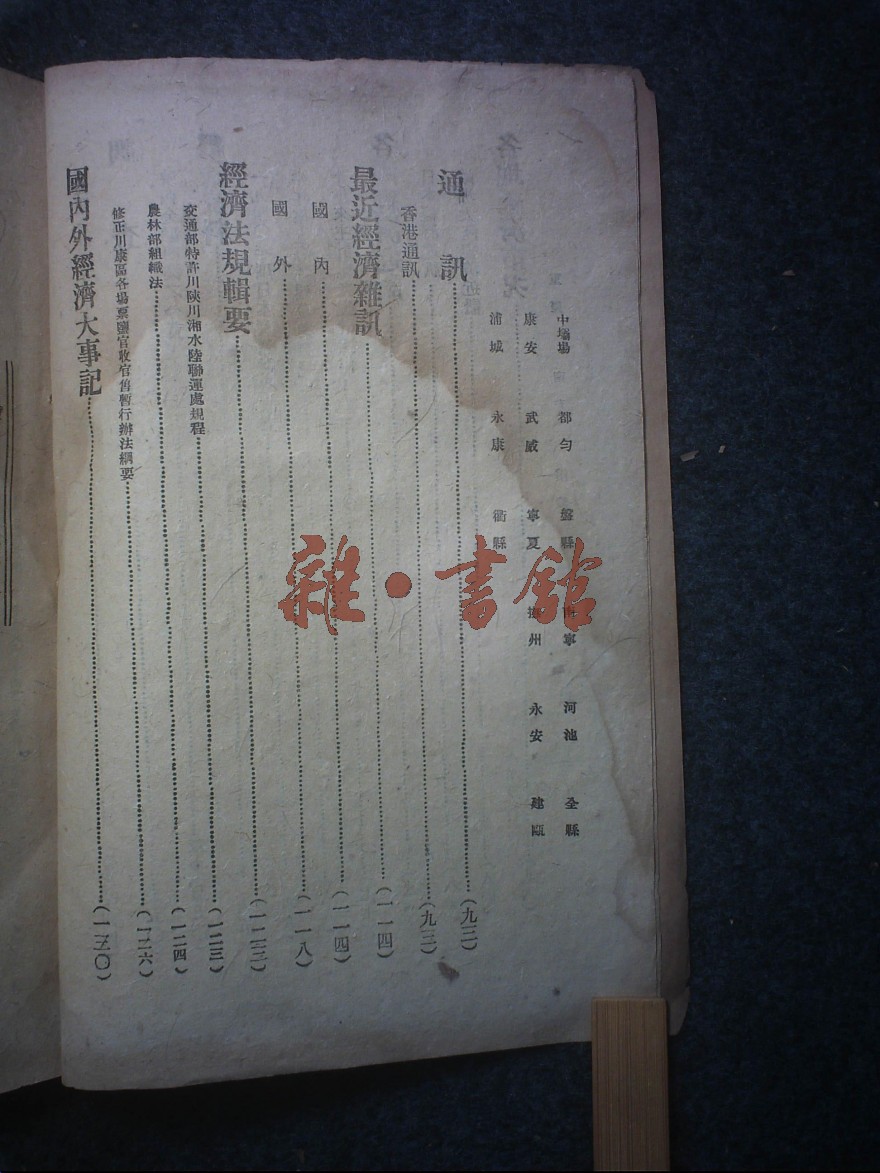 中壩場 都勻 盤縣 南寧 河池 全縣
康安 武威 寧夏 州 永安 建甌
浦城 永康 衢縣
通訊……(九三)
香港通訊……(九三)
最近經濟雜訊……(一一四)
國內……(一一四)
國外……(一一八)
經濟法規輯要……(一二三)
交通部特許川陝川湘水陸聯運處規程……(一二三)
農林部組織法……(一二四)
修正川康區各場票鹽官收官售暫行辦法綱要……(一二六)
國內外經濟大事記……(一三〇)
雜·書館